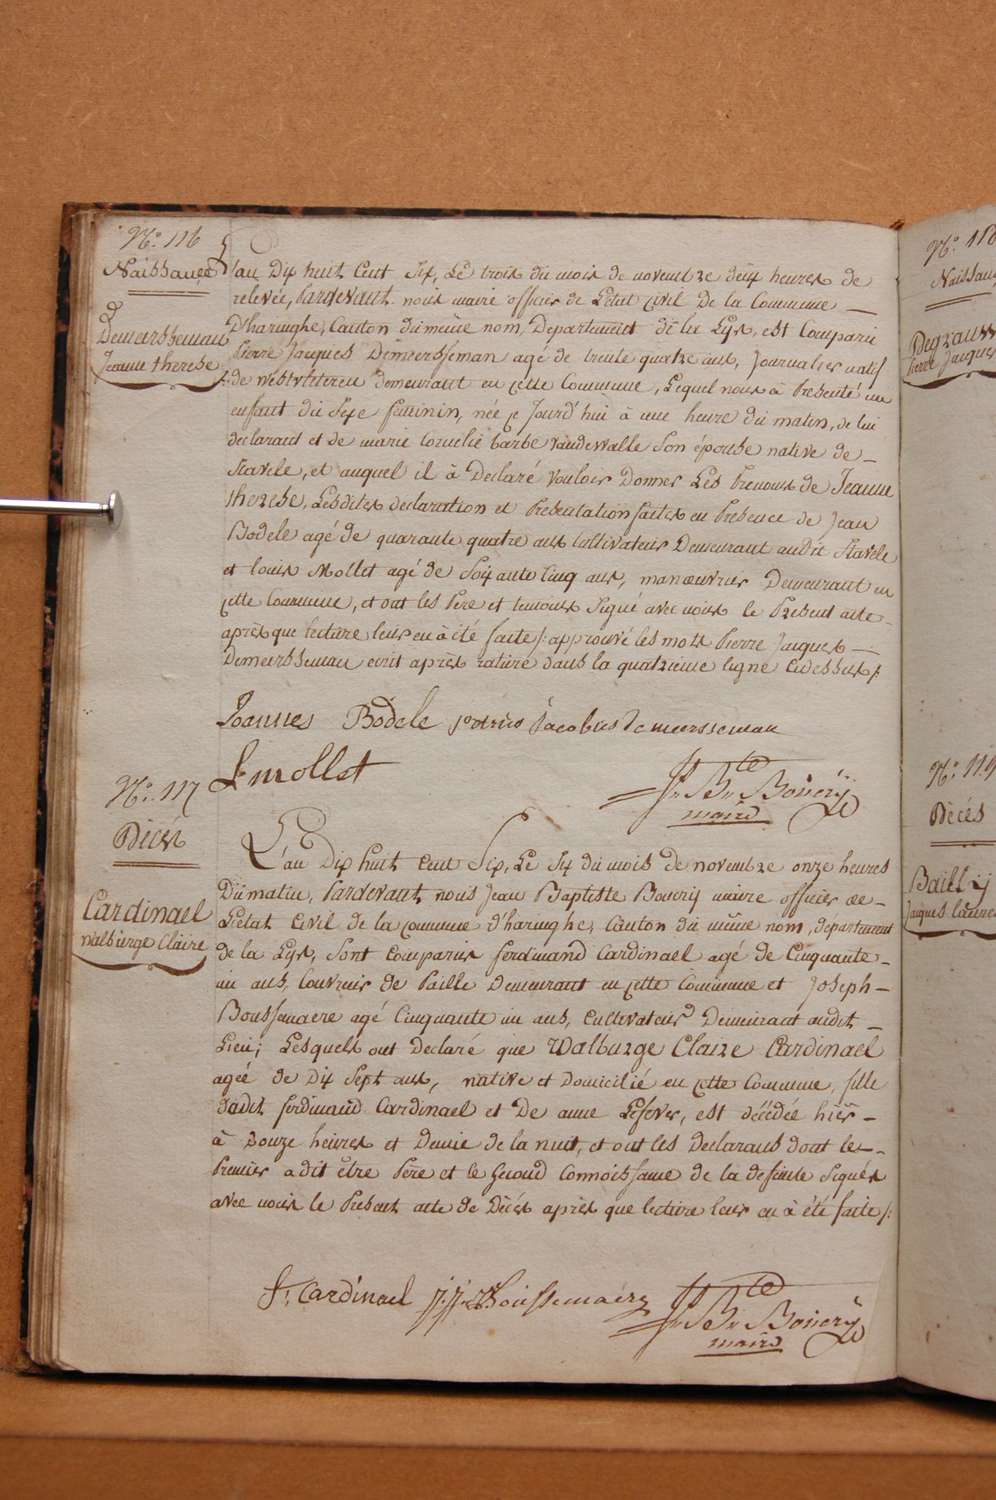 No. 116
Naissance
Demeersseman
Jeanne therese
L'an Dix huit Cent Six, Le trois du mois de novembre deux heures de
relevée, Pardevant nous maire officier de L'état civil De la Commune
D'haringhe, Canton du même nom, Departement de la Lys, est Comparu
Pierre Jacques Demeersseman agé de trente quatre ans, Journalier natif
de Westvleteren demeurant en cette Commune, Lequel nous à Presenté un
enfant du Sexe feminin, née ce Jourd'hui à une heure du matin, de lui
declarant et de marie Cornelie barbe vandewalle Son épouse native de
Stavele, et auquel il à Declaré vouloir Donner Les Prenoms de Jeanne
therese, Lesdites declaration et Presentation faites en Presence de Jean
Bodele agé de quarante quatre ans Cultivateur Demeurant audit Stavele
et louis Mollet agé de Soixante Cinq ans, manœuvrier Demeurant en
cette Commune, et ont les Pere et temoins Signé avec nous le Present acte
après que lecture leur en à été faite /: approuvé les mots Pierre Jacques
Demeersseman ecrit après rature dans la quatrieme ligne cidessus /:
Joannes Bodele petrus Jacobus Demeersseman
L. mollet
Jn Bte Boüery
maire
No. 117
Décés
Cardinael
walburge Claire
L'an Dix huit Cent Six, Le Six du mois de novembre onze heures
Du matin, Pardevant nous Jean Baptiste Bouery maire officier de
L'état Civil de la commune d'haringhe, Canton du même nom, département
de la Lys, Sont comparus ferdinand Cardinael agé de Cinquante
un ans, Couvreur de Paille Demeurant en cette Commune et Joseph
Boussemaere agé Cinquante un ans, Cultivateur Demeurant audit
Lieu; Lesquels ont Declaré que Walburge Claire Cardinael
agée de Dix Sept ans, native et Domicilié en cette Commune, fille
dudit ferdinand Cardinael et De anne Lefever, est décédée hier
à Douze heures et Demie de la nuit, et ont les Declarans dont le
Premier a dit être Pere et le Second Connoissance de la defunte Signés
avec nous le Present acte de Décés après que lecture leur en à été faite /:
f. Cardinael j. j. Boussemaere
Jn Bte Boüery
maire
Naissance
Pierre Jacques
No. 119
Décés
Bailly